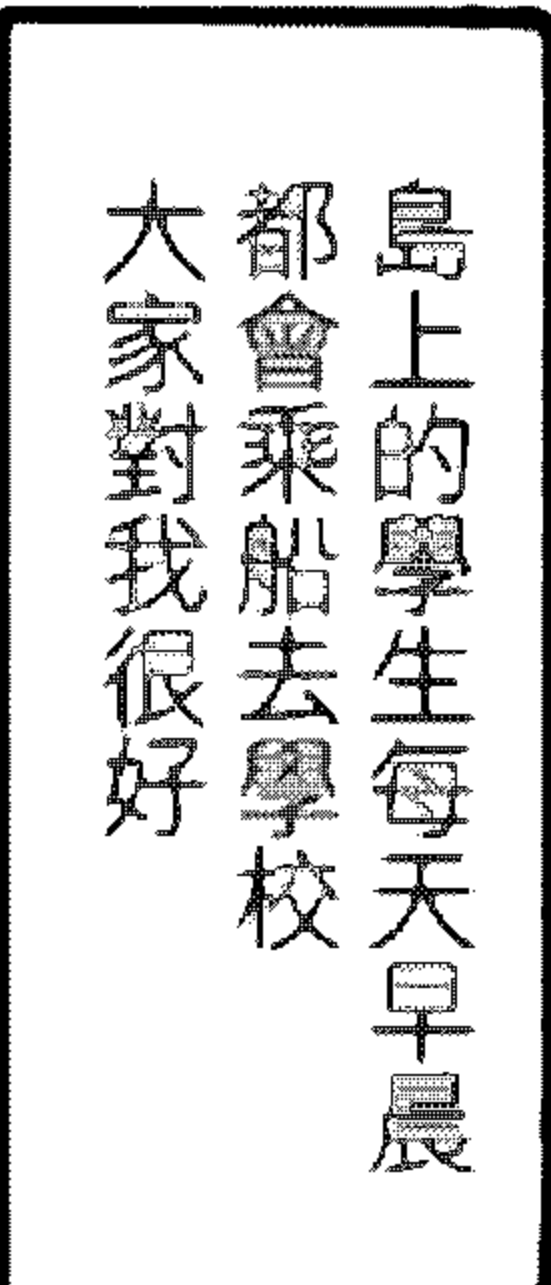 島上的學生每天早晨
都會乘船去學校
大家對我很好